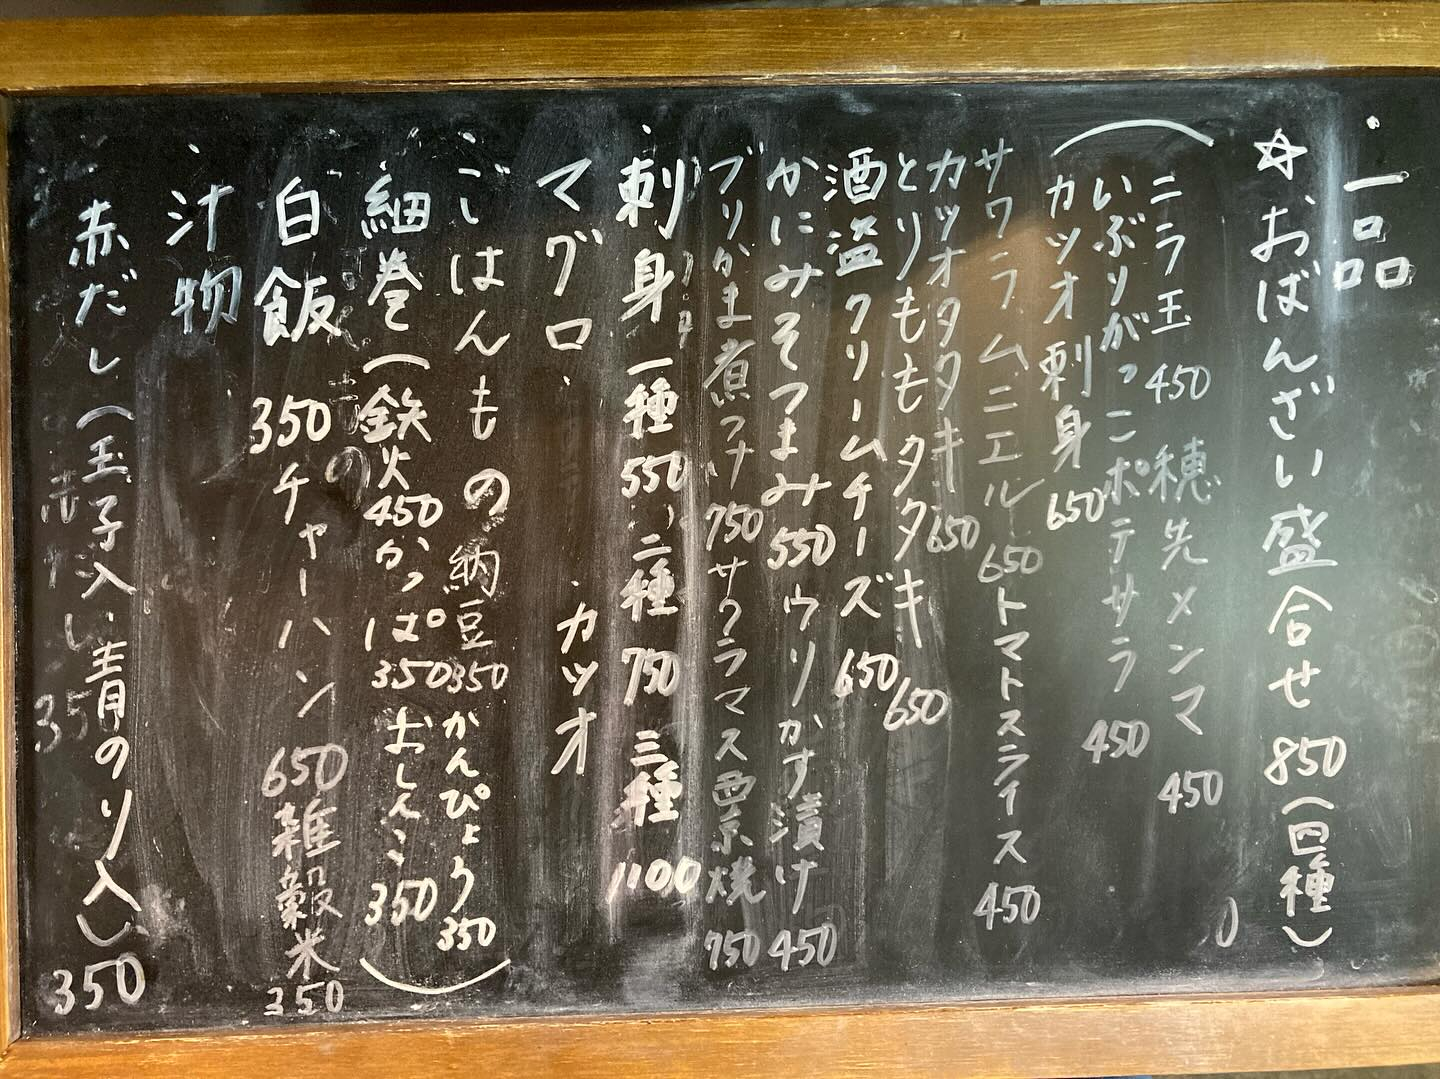 一品
☆おばんざい盛合せ 850(四種)
ニラ玉 450 穂先メンマ 450
いぶりがっこポテサラ 450
カツオ刺身 650
サワラムニエル 650 トマトスライス 450
カツオタタキ 650
とりももタタキ 650
酒盗クリームチーズ 650
かにみそつまみ 550 ウリかす漬け 450
ブリかま煮つけ 750 サクラマス西京焼 750
刺身 一種 550、二種 750 三種 1100
マグロ、カツオ
ごはんもの 納豆 350 かんぴょう 350
細巻(鉄火 450 かっぱ 350 おしんこ 350)
白飯 350 チャーハン 650 雑穀米 350
汁物
赤だし(玉子入い青のり入い) 350